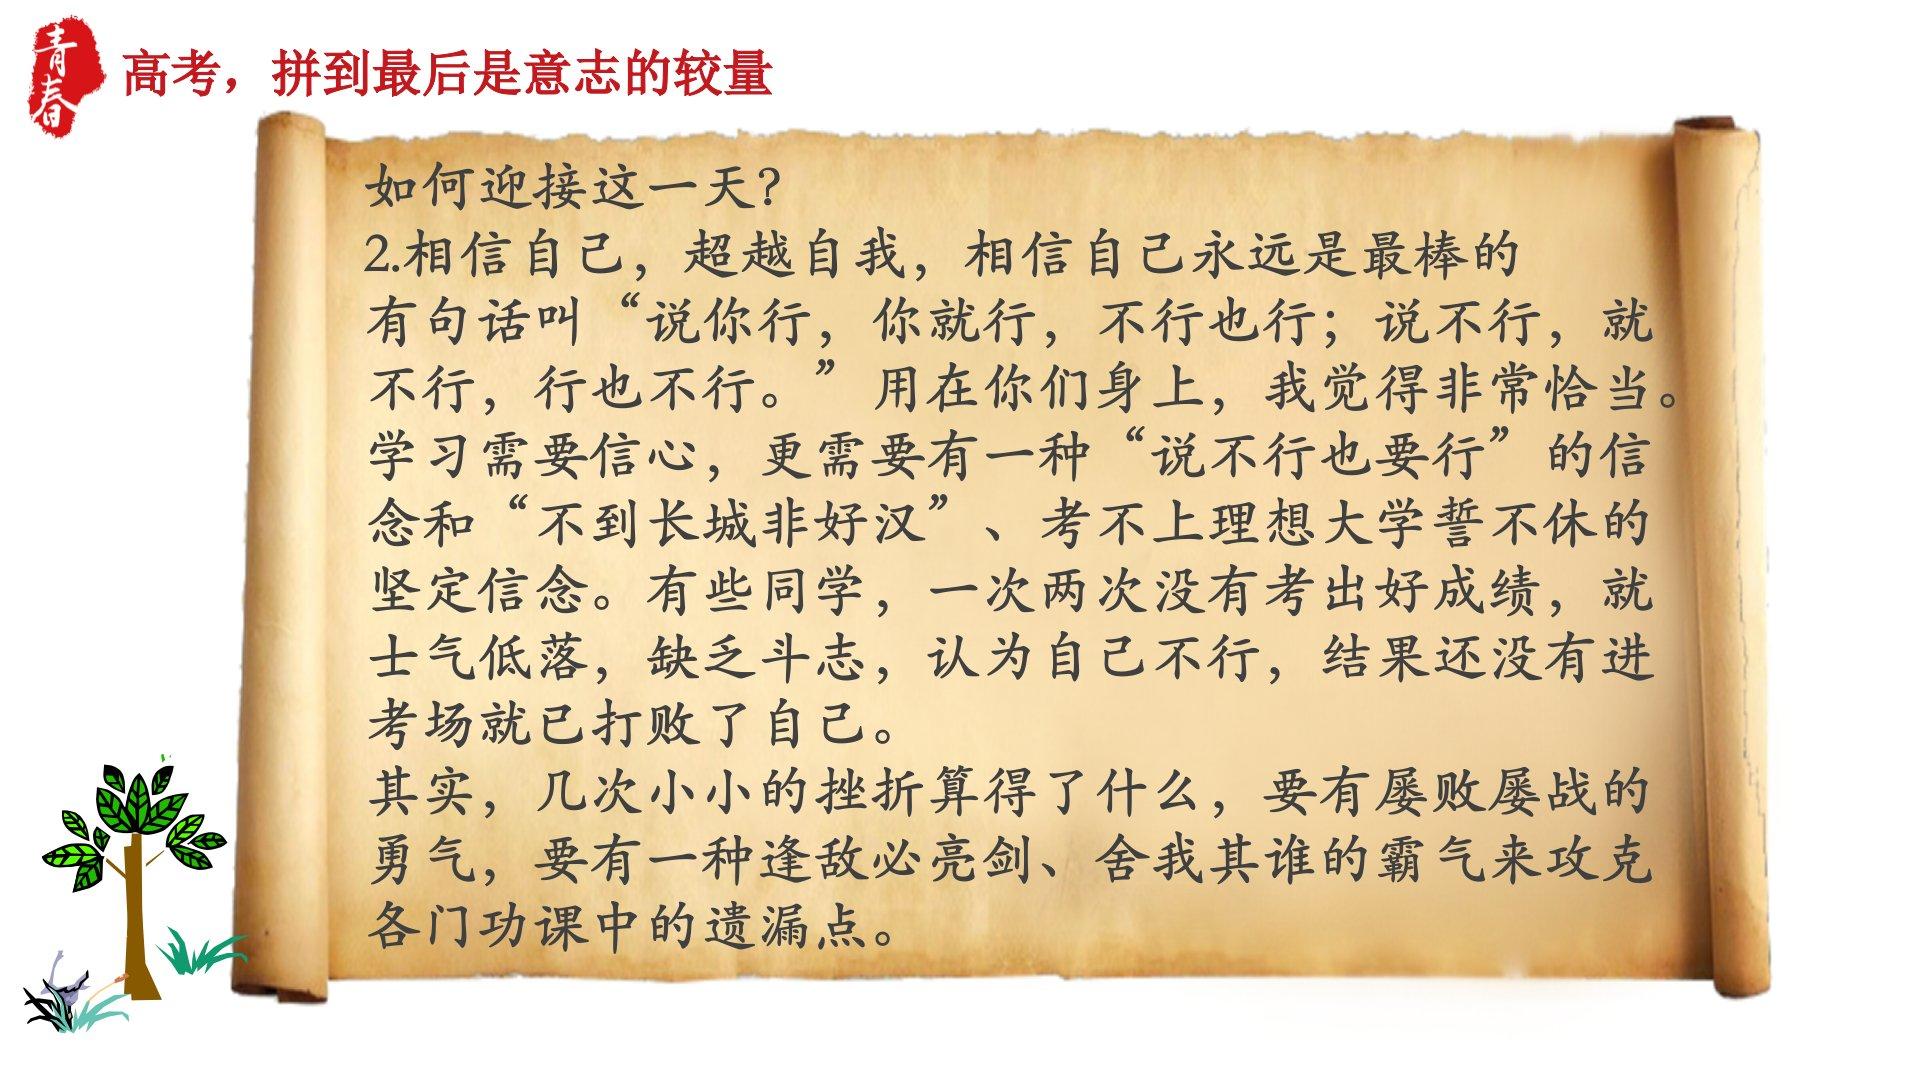 青春
高考，拼到最后是意志的较量
如何迎接这一天?
2.相信自己，超越自我，相信自己永远是最棒的
有句话叫“说你行，你就行，不行也行；说不行，就
不行，行也不行。” 用在你们身上，我觉得非常恰当。
学习需要信心，更需要有一种“说不行也要行”的信
念和“不到长城非好汉”、考不上理想大学誓不休的
坚定信念。有些同学，一次两次没有考出好成绩，就
士气低落，缺乏斗志，认为自己不行，结果还没有进
考场就已打败了自己。
其实，几次小小的挫折算得了什么，要有屡败屡战的
勇气，要有一种逢敌必亮剑、舍我其谁的霸气来攻克
各门功课中的遗漏点。